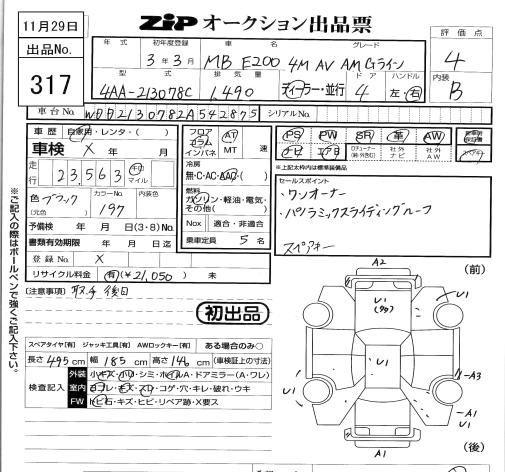 11月29日
ZIP オークション出品票
出品No.
317
年式 初年度登録 車名 グレード
3年3月 MB E200 4M AV AM Gライン
型式 排気量 ドア ハンドル
4AA-213078C 1,490 ディーラー・並行 4 左・右
評価点
4
内装
B
車台No. WDD2130782A542875 シリアルNo.
車歴 自家用・レンタ・( )
車検 X 年 月
走行 23,563 km マイル
色 ブラック
(元色)
カラーNo.
197
予備検 年 月 日(3・8)No.
書類有効期限 年 月 日迄
登録No. X
リサイクル料金 有(¥21,050) 未
フロア コラム インパネ AT MT 速
冷房
無・C・AC・AAC・( )
燃料
ガソリン・軽油・電気・その他( )
Nox 適合・非適合
乗車定員 5名
PS PW SR 革 AW
ナビ エアB 社外ナビ 社外AW
※上記太枠内は標準装備品
セールスポイント
・ワンオーナー
・パノラミックスライディングルーフ
スペアキー
※ご記入の際はボールペンで強くご記入下さい。
(注意事項) 取・子 後日
初出品
スペアタイヤ[有] ジャッキ工具[有] AWロックキー[有] ある場合のみ〇
長さ 495cm 幅 185cm 高さ 146cm (車検証上の寸法)
検査記入
外装 小キズ・小凹・シミ・ホイルA・ドアミラー(A・ワレ)
室内 ヨゴレ・キズ・スレ・コゲ・穴・キレ・破れ・ウキ
FW トビ石・キズ・ヒビ・リペア跡・X要ス
(前)
A2
U1
(多)
U1
U1
A3
A1
U1
A1
(後)